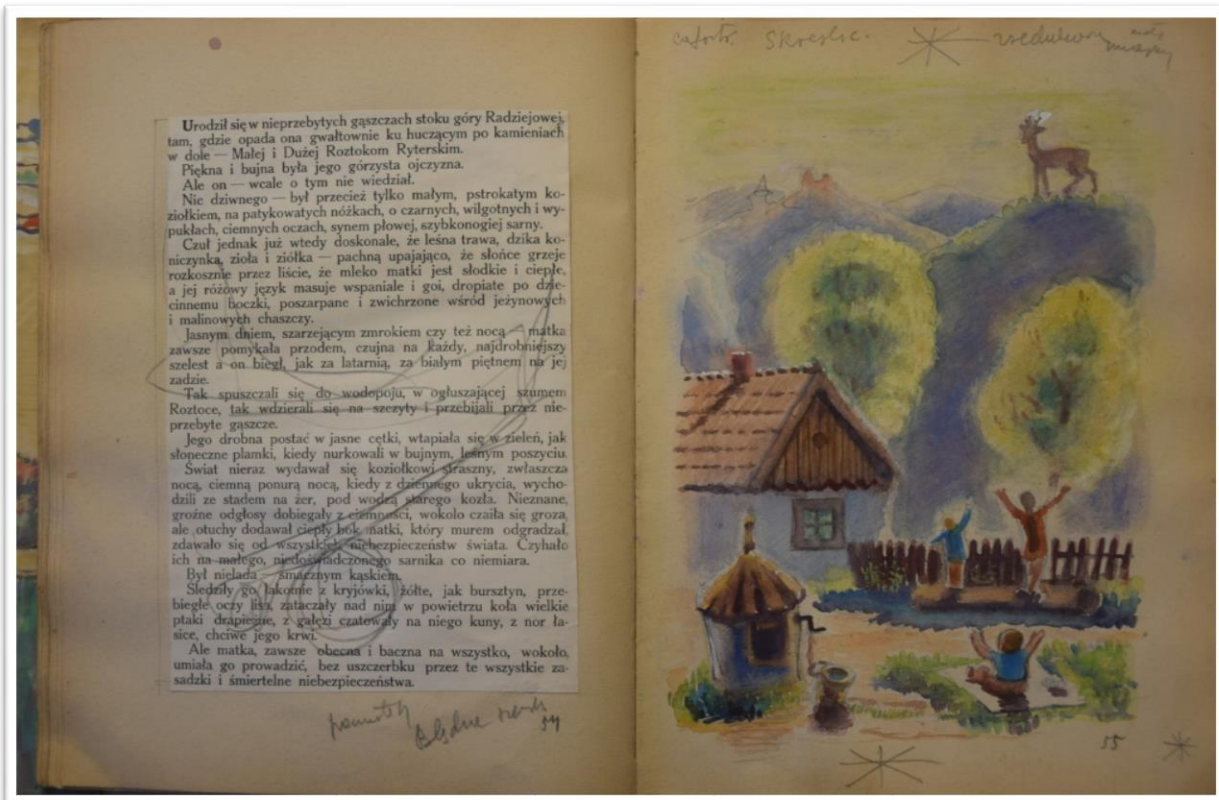 Urodził się w nieprzebytych gąszczach stoku góry Radziejowej,
tam, gdzie opada ona gwałtownie ku huczącym po kamieniach
w dole — Małej i Dużej Roztokom Ryterskim.
Piękna i bujna była jego górzysta ojczyzna.
Ale on — wcale o tym nie wiedział.
Nic dziwnego — był przecież tylko małym, pstrokatym ko-
ziołkiem, na patykowatych nóżkach, o czarnych, wilgotnych i wy-
pukłach, ciemnych oczach, synem płowej, szybkonogiej sarny.
Czuł jednak już wtedy doskonale, że leśna trawa, dzika ko-
niczynka, zioła i ziółka — pachną upajająco, że słońce grzeje
rozkosznie przez liście, że mleko matki jest słodkie i ciepłe,
a jej różowy język masuje wspaniale i goi, dropiate po dzie-
cinnemu boczki, poszarpane i zwichrzone wśród jeżynowych
i malinowych chaszczy.
Jasnym dniem, szarzejącym zmrokiem czy też nocą — matka
zawsze pomykała przodem, czujna na każdy, najdrobniejszy
szelest a on biegł, jak za latarnią, za białym piętnem na jej
zadzie.
Tak spuszczali się do wodopoju, w ogłuszającej szumem
Roztoce, tak wdzierali się na szczyty i przebijali przez nie-
przebyte gąszcze.
Jego drobna postać w jasne cętki, wtapiała się w zieleń, jak
słoneczne plamki, kiedy nurkowali w bujnym, leśnym poszyciu.
Świat nieraz wydawał się koziołkowi straszny, zwłaszcza
nocą, ciemną ponurą nocą, kiedy z dziennego ukrycia, wycho-
dzili ze stadem na żer, pod wodzą starego kozła. Nieznane,
groźne odgłosy dobiegały z ciemności, wokoło czaiła się groza,
ale otuchy dodawał ciepły bok matki, który murem odgradzał,
zdawało się od wszystkich niebezpieczeństw świata. Czyhało
ich na małego, niedoświadczonego sarnika co niemiara.
Był nielada — smacznym kąskiem.
Śledziły go łakomie z kryjówki, żółte, jak bursztyn, prze-
biegłe oczy lisa, zataczały nad nim w powietrzu koła wielkie
ptaki drapieżne, z gałęzi czatowały na niego kuny, z nor ła-
sice, chciwe jego krwi.
Ale matka, zawsze obecna i baczna na wszystko, wokoło,
umiała go prowadzić, bez uszczerbku przez te wszystkie za-
sadzki i śmiertelne niebezpieczeństwa.
Błędne
54
55